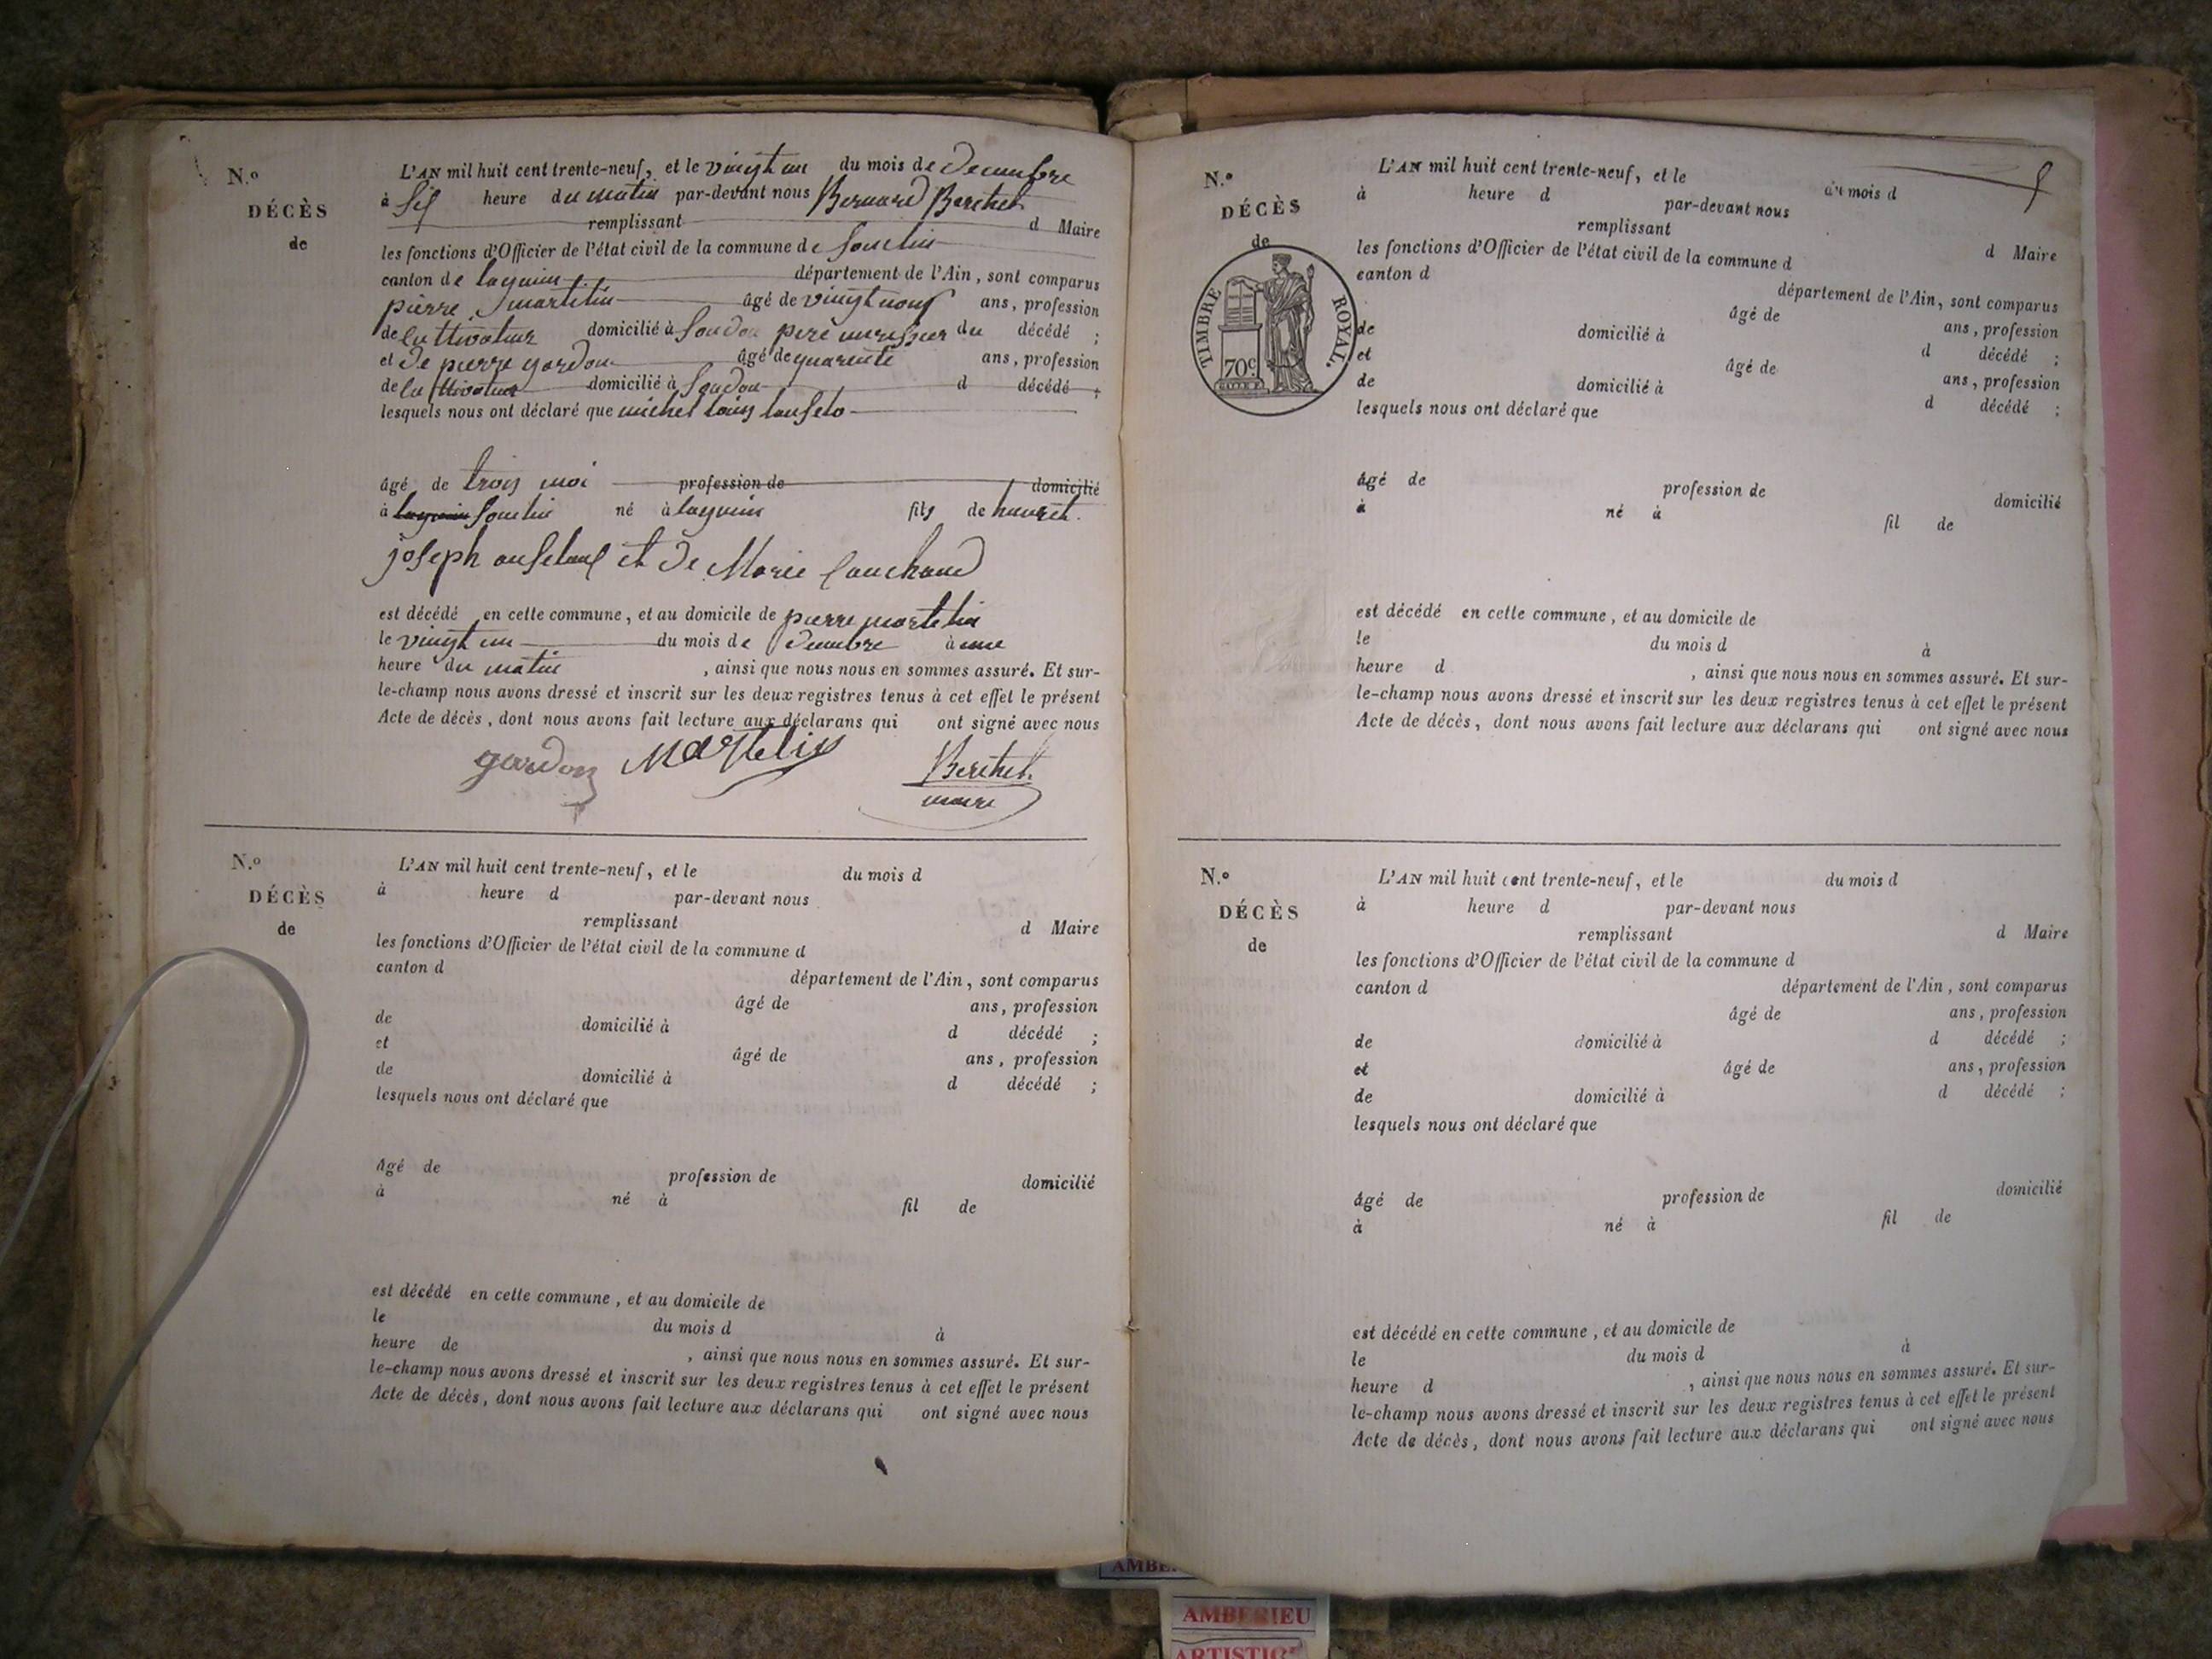 N.º
DÉCÈS
de
L'AN mil huit cent trente-neuf, et le vingt un du mois de Decembre
à heure du matin par-devant nous Bernard Berthet
remplissant d Maire
les fonctions d'Officier de l'état civil de la commune de Souclin
canton de lagnieu département de l'Ain, sont comparus
pierre martelin âgé de vingt nouf ans, profession
de cultivateur domicilié à Soudon pere nourissier du décédé ;
et de pierre gordon âgé de quarente ans, profession
de cultivateur domicilié à Soudon d décédé ;
lesquels nous ont déclaré que michel louis
âgé de trois moi profession de domicilié
à Souclin né à lagnieu fils de
joseph et de Marie
est décédé en cette commune, et au domicile de pierre martelin
le vingt un du mois de Decembre à une
heure du matin , ainsi que nous nous en sommes assuré. Et sur-
le-champ nous avons dressé et inscrit sur les deux registres tenus à cet effet le présent
Acte de décès, dont nous avons fait lecture aux déclarans qui ont signé avec nous
gordon Martelin Berthet
maire
N.º
DÉCÈS
de
L'AN mil huit cent trente-neuf, et le du mois d
à heure d par-devant nous
remplissant d Maire
les fonctions d'Officier de l'état civil de la commune d
canton d département de l'Ain, sont comparus
âgé de ans, profession
de domicilié à d décédé ;
et âgé de ans, profession
de domicilié à d décédé ;
lesquels nous ont déclaré que
âgé de profession de domicilié
à né à fil de
est décédé en cette commune, et au domicile de
le du mois d à
heure de , ainsi que nous nous en sommes assuré. Et sur-
le-champ nous avons dressé et inscrit sur les deux registres tenus à cet effet le présent
Acte de décès, dont nous avons fait lecture aux déclarans qui ont signé avec nous
N.º
DÉCÈS
de
TIMBRE ROYAL.
70c
L'AN mil huit cent trente-neuf, et le du mois d
à heure d par-devant nous
remplissant d Maire
les fonctions d'Officier de l'état civil de la commune d
canton d département de l'Ain, sont comparus
âgé de ans, profession
de domicilié à d décédé ;
et âgé de ans, profession
de domicilié à d décédé ;
lesquels nous ont déclaré que
âgé de profession de domicilié
à né à fil de
est décédé en cette commune, et au domicile de
le du mois d à
heure d , ainsi que nous nous en sommes assuré. Et sur-
le-champ nous avons dressé et inscrit sur les deux registres tenus à cet effet le présent
Acte de décès, dont nous avons fait lecture aux déclarans qui ont signé avec nous
N.º
DÉCÈS
de
L'AN mil huit cent trente-neuf, et le du mois d
à heure d par-devant nous
remplissant d Maire
les fonctions d'Officier de l'état civil de la commune d
canton d département de l'Ain, sont comparus
âgé de ans, profession
de domicilié à d décédé ;
et âgé de ans, profession
de domicilié à d décédé ;
lesquels nous ont déclaré que
âgé de profession de domicilié
à né à fil de
est décédé en cette commune, et au domicile de
le du mois d à
heure d , ainsi que nous nous en sommes assuré. Et sur-
le-champ nous avons dressé et inscrit sur les deux registres tenus à cet effet le présent
Acte de décès, dont nous avons fait lecture aux déclarans qui ont signé avec nous
AMBERIEU